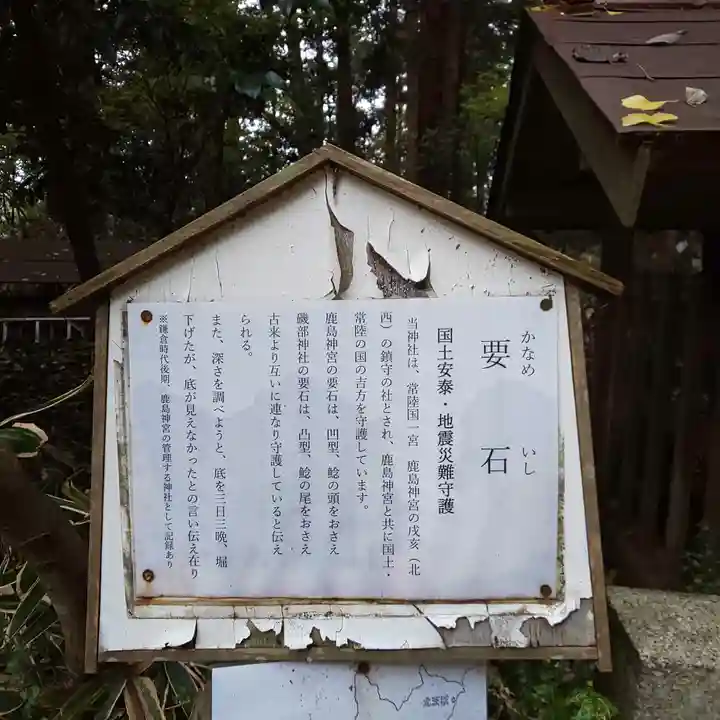 要石
かなめ いし
国土安泰・地震災難守護
当神社は、常陸国一宮 鹿島神宮の戌亥（北
西）の鎮守の社とされ、鹿島神宮と共に国土・
常陸の国の吉方を守護しています。
鹿島神宮の要石は、凹型、鯰の頭をおさえ
磯部神社の要石は、凸型、鯰の尾をおさえ
古来より互いに連なり守護していると伝え
られる。
また、深さを調べようと、底を三日三晩、堀
下げたが、底が見えなかったとの言い伝え在り
※鎌倉時代後期、鹿島神宮の管理する神社として記録あり